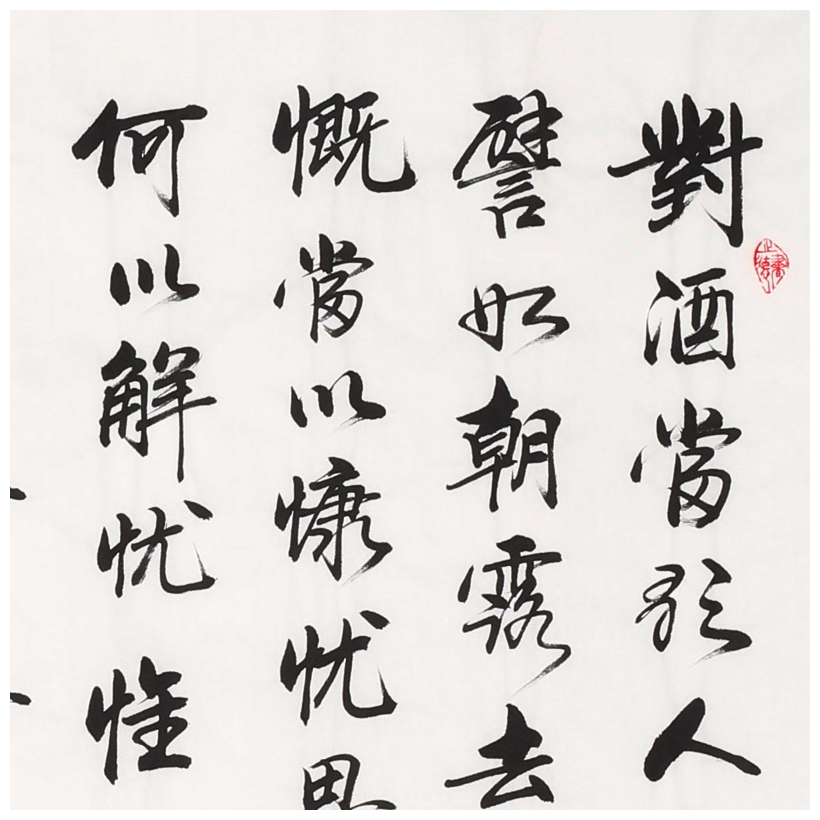 對酒當歌人
譬如朝露去
慨當以慷忧思
何以解忧惟